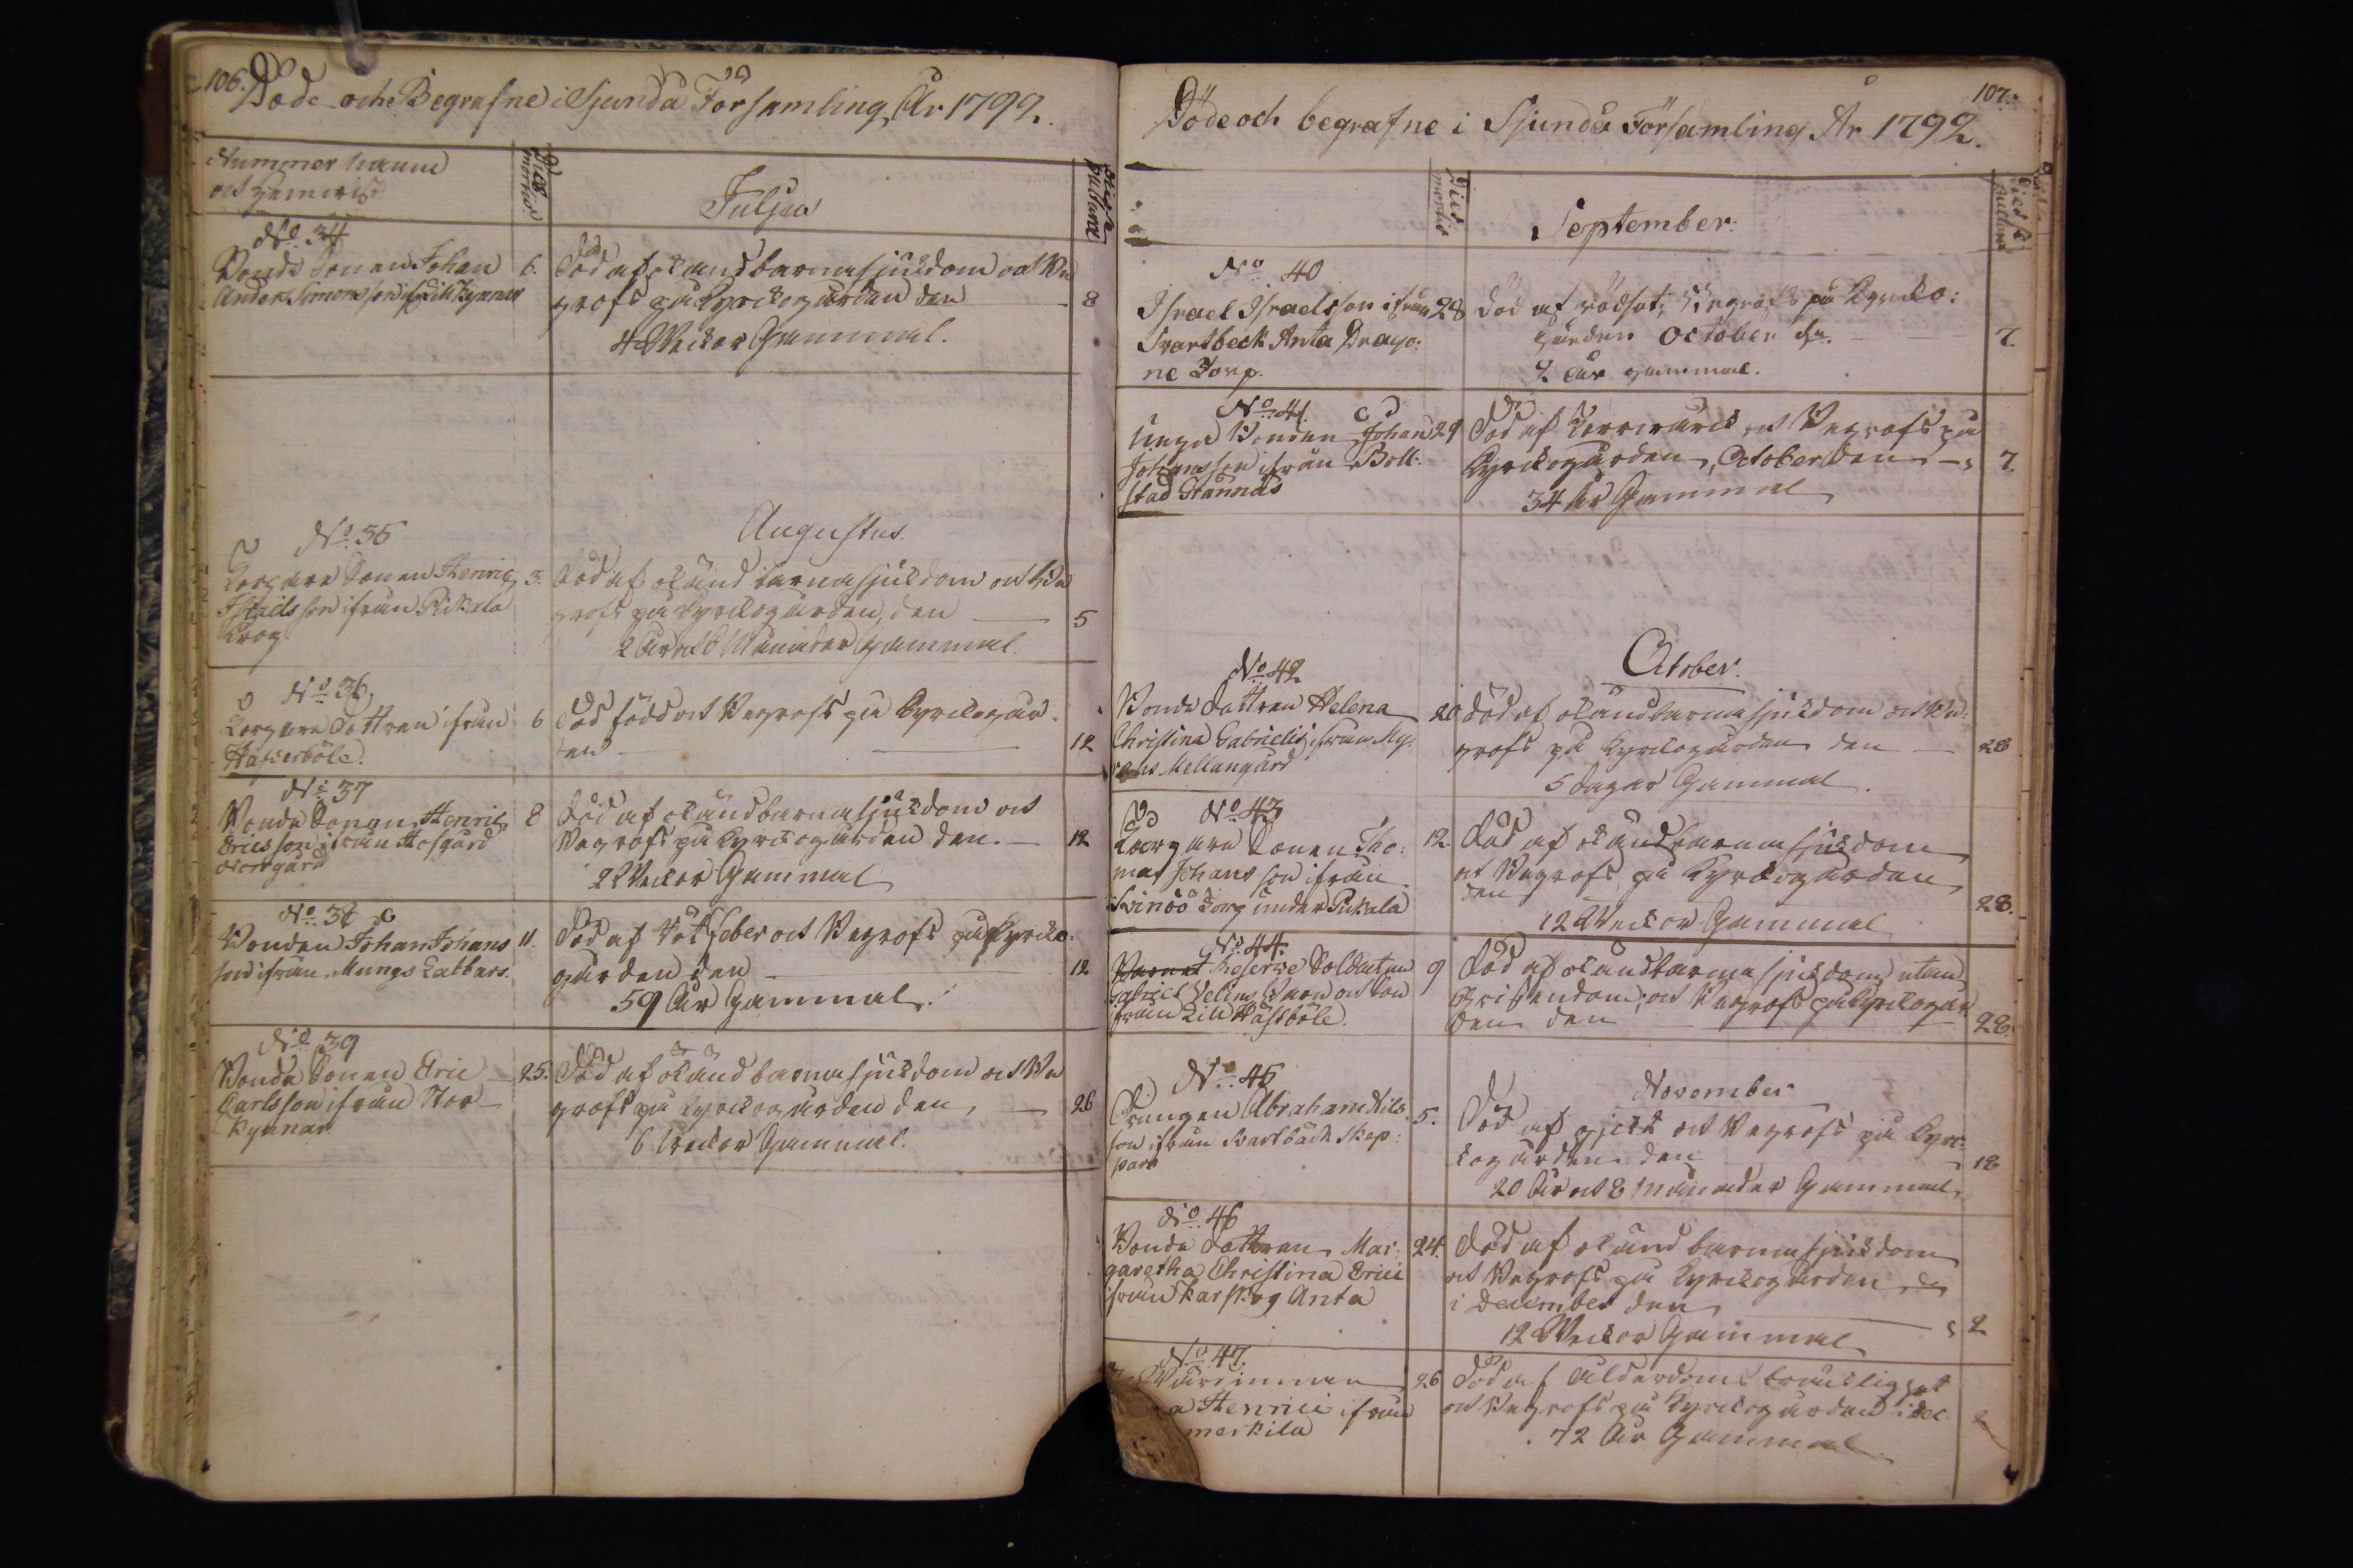 106.
Döde och Begrafne i Sjundå Församling År 1792.
Nummer Namn
och Hemvist
Dies
mortis
Julius
Dies se
pulturæ
No. 34
Bonde Sonen Johan
Anders Simonsson if. Lill Kynnar
6.
Död af okänd barnasjukdom och Be
grofs på Kyrckogården den
8
4 Weckor Gammal.
Augustus
No. 35
Torpare Sonen Henric
Israelsson ifrån Pickala
Krog
3.
död af okänd barnasjukdom och Be
grofs på Kyrckogården, den
5
2 År och 6 Månader gammal.
No. 36.
Torpare Dottren ifrån
Hafverböle.
6
Död född och Begrofs på Kyrckogår
den
12
No. 37
Bonde Sonen Henric
Ericsson ifrån Hofgård
Norrgård
8
Död af okänd barnasjukdom och
Begrofs på Kyrckogården den.
12
2 Weckor Gammal
No. 38
Bonden Johan Johans
son ifrån Mungs Labbars.
11.
Död af Rötfeber och Begrofs på Kyrcko
gården den
12
59 År Gammal.
No. 39
Bonda Sonen Eric
Carlsson ifrån Stor
Kynnar
25.
Död af okänd barnasjukdom och Be
grofs på Kyrckogården den
26
6 Weckor Gammal.
107.
Döde och begrafne i Sjundå Församling År 1792.
Dies
mortis
September.
Dies se
pulturæ
No. 40
Israel Israelsson ifrån
Svartbeck Anta Drago:
ne Torp.
28
Död af rödsot, Begrofs på Kyrcko:
gården October d.
7.
2 år gammal.
No. 41.
Unga Bonden Johan
Johansson ifrån Boll:
stad Grannas
29
Död af och Begrofs på
Kyrckogården, October den
7.
34 år Gammal
October.
No. 42
Bonde dottren Helena
Christina Gabrielis ifrån My:
rans Mellangård
20
död af okänd barnasjukdom och Be:
grofs på Kyrckogården den
28
5 dagar Gammal.
No. 43
Torpare Sonen Tho:
mas Johansson ifrån
Svinöö Torp under Pickala
12.
död af okänd barnasjukdom
och Begrofs på Kyrckogården
den
28.
12 Weckor Gammal
No. 44.
Barnet Reserve Soldaten
Gabriel Velins Barn en son
från Lill Hästböle.
9
död af okänd barnasjukdom utan
Kristendom, och Begrofs på Kyrckogår
den den
28.
No. 45
Drängen Abraham Nils
son ifrån Svartbäck Skep:
pars
5.
November
Död af gickt och Begrofs på Kyrc:
kogården den
18
20 År och 8 Månader Gammal
No. 46
Bonde dottren Mar:
garetha Christina Erici
ifrån Karskog Anta
24.
död af okänd barnasjukdom
och Begrofs på Kyrckogården
i December den
2
12 Weckor Gammal
No. 47.
Wärdinnan
a Henrici ifrån
merkila
26
Död af Ålderdoms bräcklighet
och Begrofs på Kyrckogården i Dec.
2
72 År Gammal